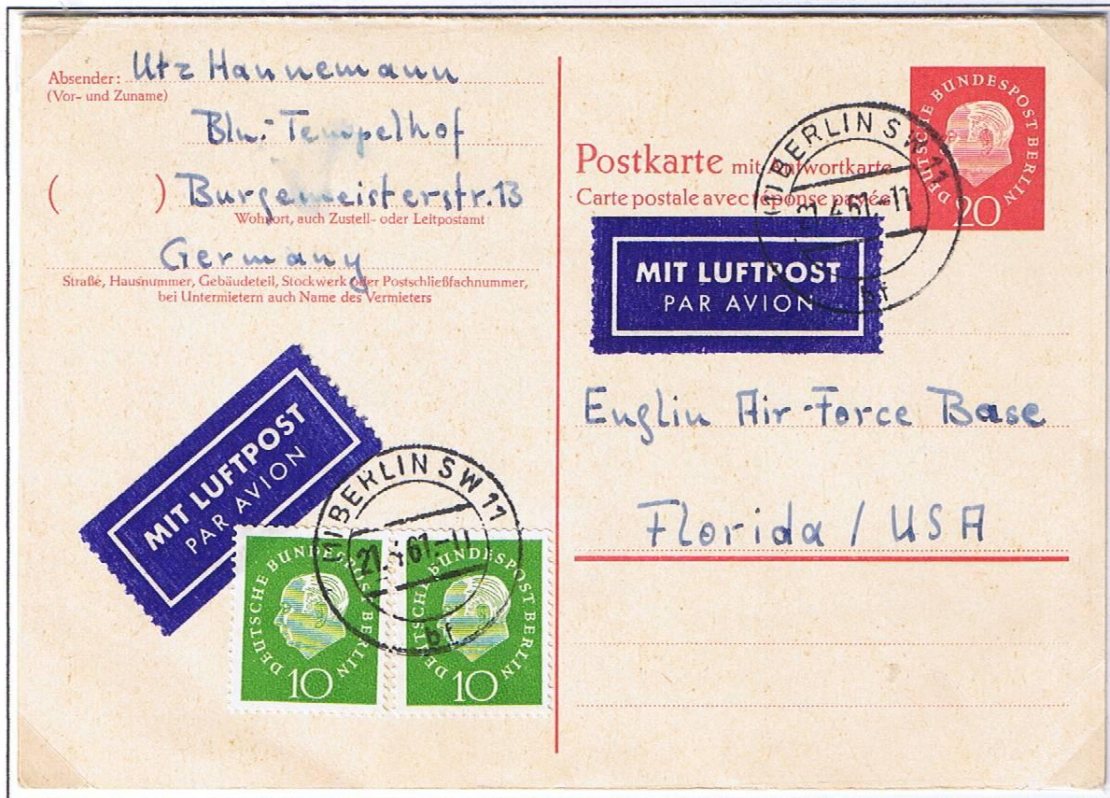 Absender: Utz Hannemann
(Vor- und Zuname)
Bln.-Tempelhof
( ) Burgemeisterstr. 13
Wohnort, auch Zustell- oder Leitpostamt
Germany
Straße, Hausnummer, Gebäudeteil, Stockwerk oder Postschließfachnummer,
bei Untermietern auch Name des Vermieters
MIT LUFTPOST
PAR AVION
BERLIN SW 11
21.4.61.-11
bf
DEUTSCHE BUNDESPOST BERLIN
10
DEUTSCHE BUNDESPOST BERLIN
10
DEUTSCHE BUNDESPOST BERLIN
20
Postkarte mit Antwortkarte
Carte postale avec réponse payée
BERLIN SW 11
21.4.61.-11
bf
MIT LUFTPOST
PAR AVION
Englin Air-Force Base
Florida / USA